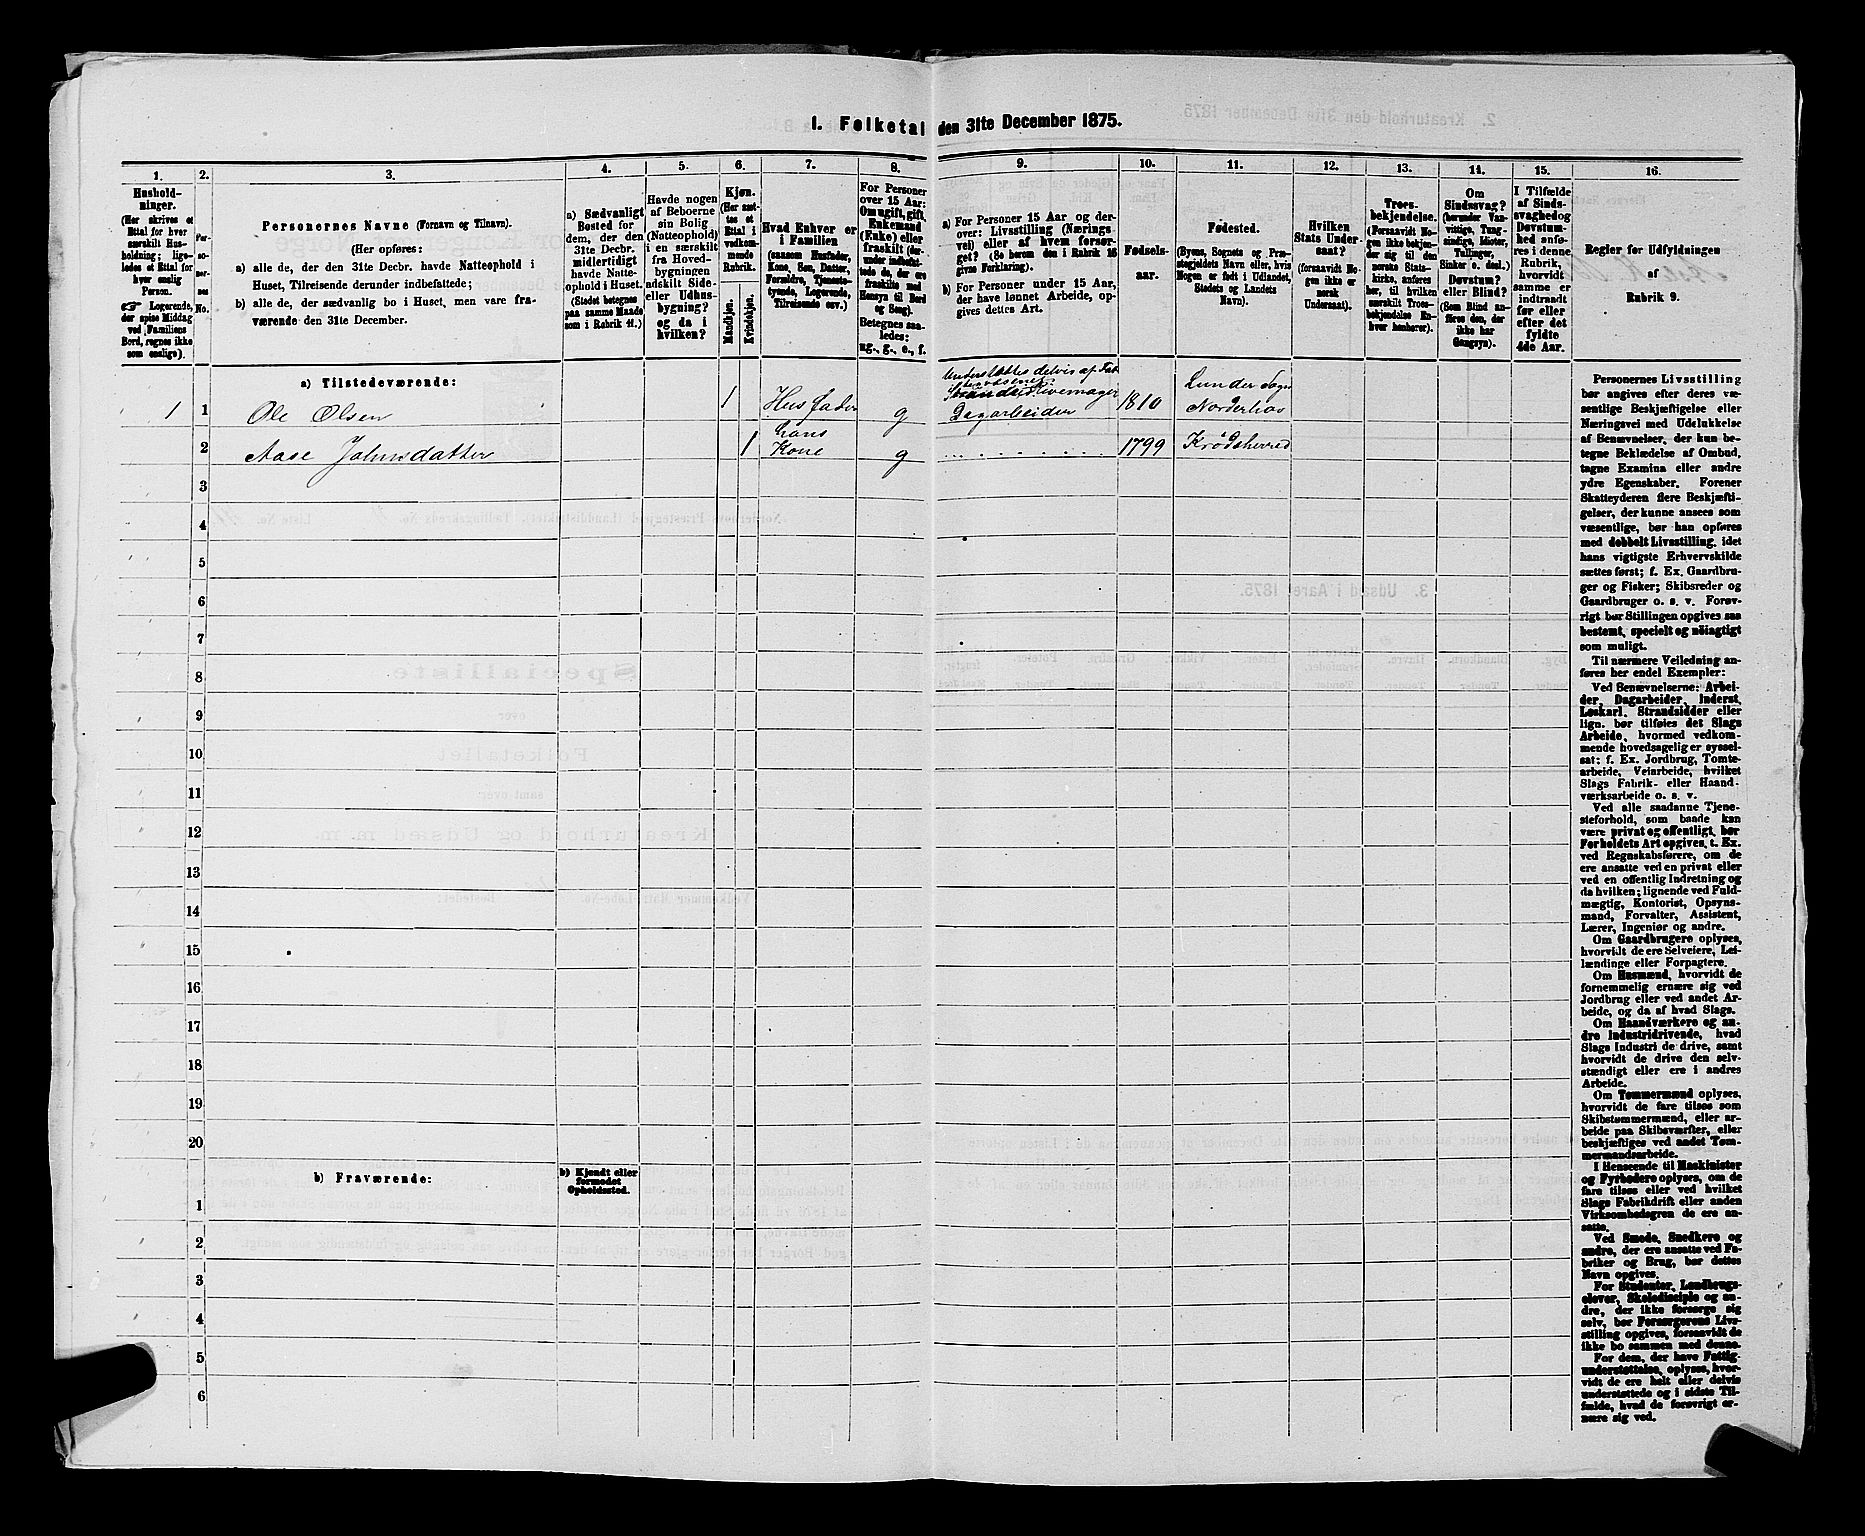 1. Folketal den 31te December 1875.
1.
2.
3.
4.
5.
6.
7.
8.
9.
10.
11.
12.
13.
14.
15.
16.
Hushold-
ninger.
(Her skrives et
Ettal for hver
særskilt Hus-
holdning; lige-
ledes et Ettal for
hver enslig
Person.
Logerende,
der spise Middag
ved Familiens
Bord, regnes ikke
som enslige).
Per-
so-
ner-
nes
No.
Personernes Navne (Fornavn og Tilnavn).
(Her opføres:
a) alle de, der den 31te Decbr. havde Natteophold i
Huset, Tilreisende derunder indbefattede;
b) alle de, der sædvanlig bo i Huset, men vare fra-
værende den 31te December.
a) Sædvanligt
Bosted for
dem, der den
31te Decbr.
midlertidigt
havde Natte-
ophold i Huset.
(Stedet betegnes
paa samme Maade
som i Rubrik 11.)
Havde nogen
af Beboerne
sin Bolig
(Natteophold)
i en særskilt
fra Hoved-
bygningen
adskilt Side-
eller Udhus-
bygning?
og da i
hvilken?
Kjøn.
(Her sæt-
tes et
Ettal i
vedkom-
mende
Rubrik.
Mandkjøn.
Kvindekjøn.
Hvad Enhver er
i Familien
(saasom Husfader,
Kone, Søn, Datter,
Forældre, Tjeneste-
tyende, Logerende,
Tilreisende osv.)
For Personer
over 15 Aar:
Om ugift, gift,
Enkemand
(Enke) eller
fraskilt (der-
under indbefat-
tede de, der ere
fraskilte med
Hensyn til Bord
og Seng).
Betegnes saa-
ledes:
ug., g., e., f.
a) For Personer 15 Aar og der-
over: Livsstilling (Nærings-
vei) eller af hvem forsør-
get? (Se herom den i Rubrik 16
givne Forklaring).
b) For Personer under 15 Aar,
der have lønnet Arbeide, op-
gives dettes Art.
Fødsels-
aar.
Fødested.
(Byens, Sognets og Præ-
stegjeldets Navn eller, hvis
Nogen er født i Udlandet,
Stedets og Landets
Navn).
Hvilken
Stats Under-
saat?
(forsaavidt No-
gen ikke er
norsk
Undersaat).
Troes-
bekjendelse.
(Forsaavidt No-
gen ikke bekjen-
der sig til den
norske Stats-
kirke, anføres
her, til hvilken
særskilt Troes-
bekjendelse En-
hver henhører).
Om
Sindssvag?
(herunder Van-
vittige, Tung-
sindige, Idioter,
Tullinger,
Sinker o. desl.)
Døvstum?
eller Blind?
(Som Blind an-
føres den, der
ikke har
Gangsyn).
I Tilfælde
af Sinds-
svaghed og
Døvstum-
hed anfø-
res i denne
Rubrik,
hvorvidt
samme er
indtraadt
før eller
efter det
fyldte
4de Aar.
Regler for Udfyldningen
af
Rubrik 9.
a) Tilstedeværende:
1 1 Ole Olsen 1 Husfader g Dagarbeider 1810 Lunder Sogn
Norderhov
2 Aase Johnsdatter 1 hans
Kone g . . . . . . . . 1799 Krødsherred
3
4
5
6
7
8
9
10
11
12
13
14
15
16
17
18
19
20
b) Fraværende:
b) Kjendt eller
formodet
Opholdssted.
1
2
3
4
5
6
Personernes Livsstilling
bør angives efter deres væ-
sentlige Beskjæftigelse eller
Næringsvei med Udelukkelse
af Benævnelser, der kun be-
tegne Beklædelse af Ombud,
tagne Examina eller andre
ydre Egenskaber. Forener
Skatteyderen flere Beskjæfti-
gelser, der kunne ansees som
væsentlige, bør han opføres
med dobbelt Livsstilling, idet
hans vigtigste Erhvervskilde
sættes først; f. Ex. Gaardbru-
ger og Fisker; Skibsreder og
Gaardbruger o. s. v. Forøv-
rigt bør Stillingen opgives saa
bestemt, specielt og nöiagtigt
som muligt.
Til nærmere Veiledning an-
føres her endel Exempler:
Ved Benævnelserne: Arbei-
der, Dagarbeider, Inderst,
Løskarl, Strandsidder eller
lign. bør tilføies det Slags
Arbeide, hvormed vedkom-
mende hovedsagelig er syssel-
sat; f. Ex. Jordbrug, Tomte-
arbeide, Veiarbeide, hvilket
Slags Fabrik- eller Haand-
værksarbeide o. s. v.
Ved alle saadanne Tjene-
steforhold, som baade kan
være privat og offentligt, bør
Forholdets Art opgives, t. Ex.
ved Regnskabsførere, om de
ere ansatte ved en privat eller
ved en offentlig Indretning og
da hvilken; lignende ved Fuld-
mægtig, Kontorist, Opsyns-
mand, Forvalter, Assistent,
Lærer, Ingeniør og andre.
Om Gaardbrugere oplyses,
hvorvidt de ere Selveiere, Lei-
lændinge eller Forpagtere.
Om Husmænd, hvorvidt de
fornemmelig ernære sig ved
Jordbrug eller ved andet Ar-
beide, og da af hvad Slags.
Om Haandværkere og an-
dre Industridrivende, hvad
Slags Industri de drive, samt
hvorvidt de drive den selv-
stændigt eller ere i andres
Arbeide.
Om Tømmermænd oplyses,
hvorvidt de fare tilsøs som
Skibstømmermænd, eller ar-
beide paa Skibsværfter, eller
beskjæftiges ved andet Tøm-
mermandsarbeide.
I Henseende til Maskinister
og Fyrbødere oplyses, om de
fare tilsøs eller ved hvilket
Slags Fabrikdrift eller anden
Virksomhedsgren de ere an-
satte.
Ved Smede, Snedkere og
andre, der ere ansatte ved Fa-
briker og Brug, bør dettes
Navn opgives.
For Studenter, Landbrugs-
elever, Skoledisciple og an-
dre, der ikke forsørge sig
selv, bør Forsørgerens Livs-
stilling opgives, forsaavidt de
ikke bo sammen med denne.
For dem, der have Fattig-
understøttelse, oplyses, hvor-
vidt de ere helt eller delvis
understøttede og i sidste Til-
fælde, hvad de forøvrigt er-
nære sig ved.